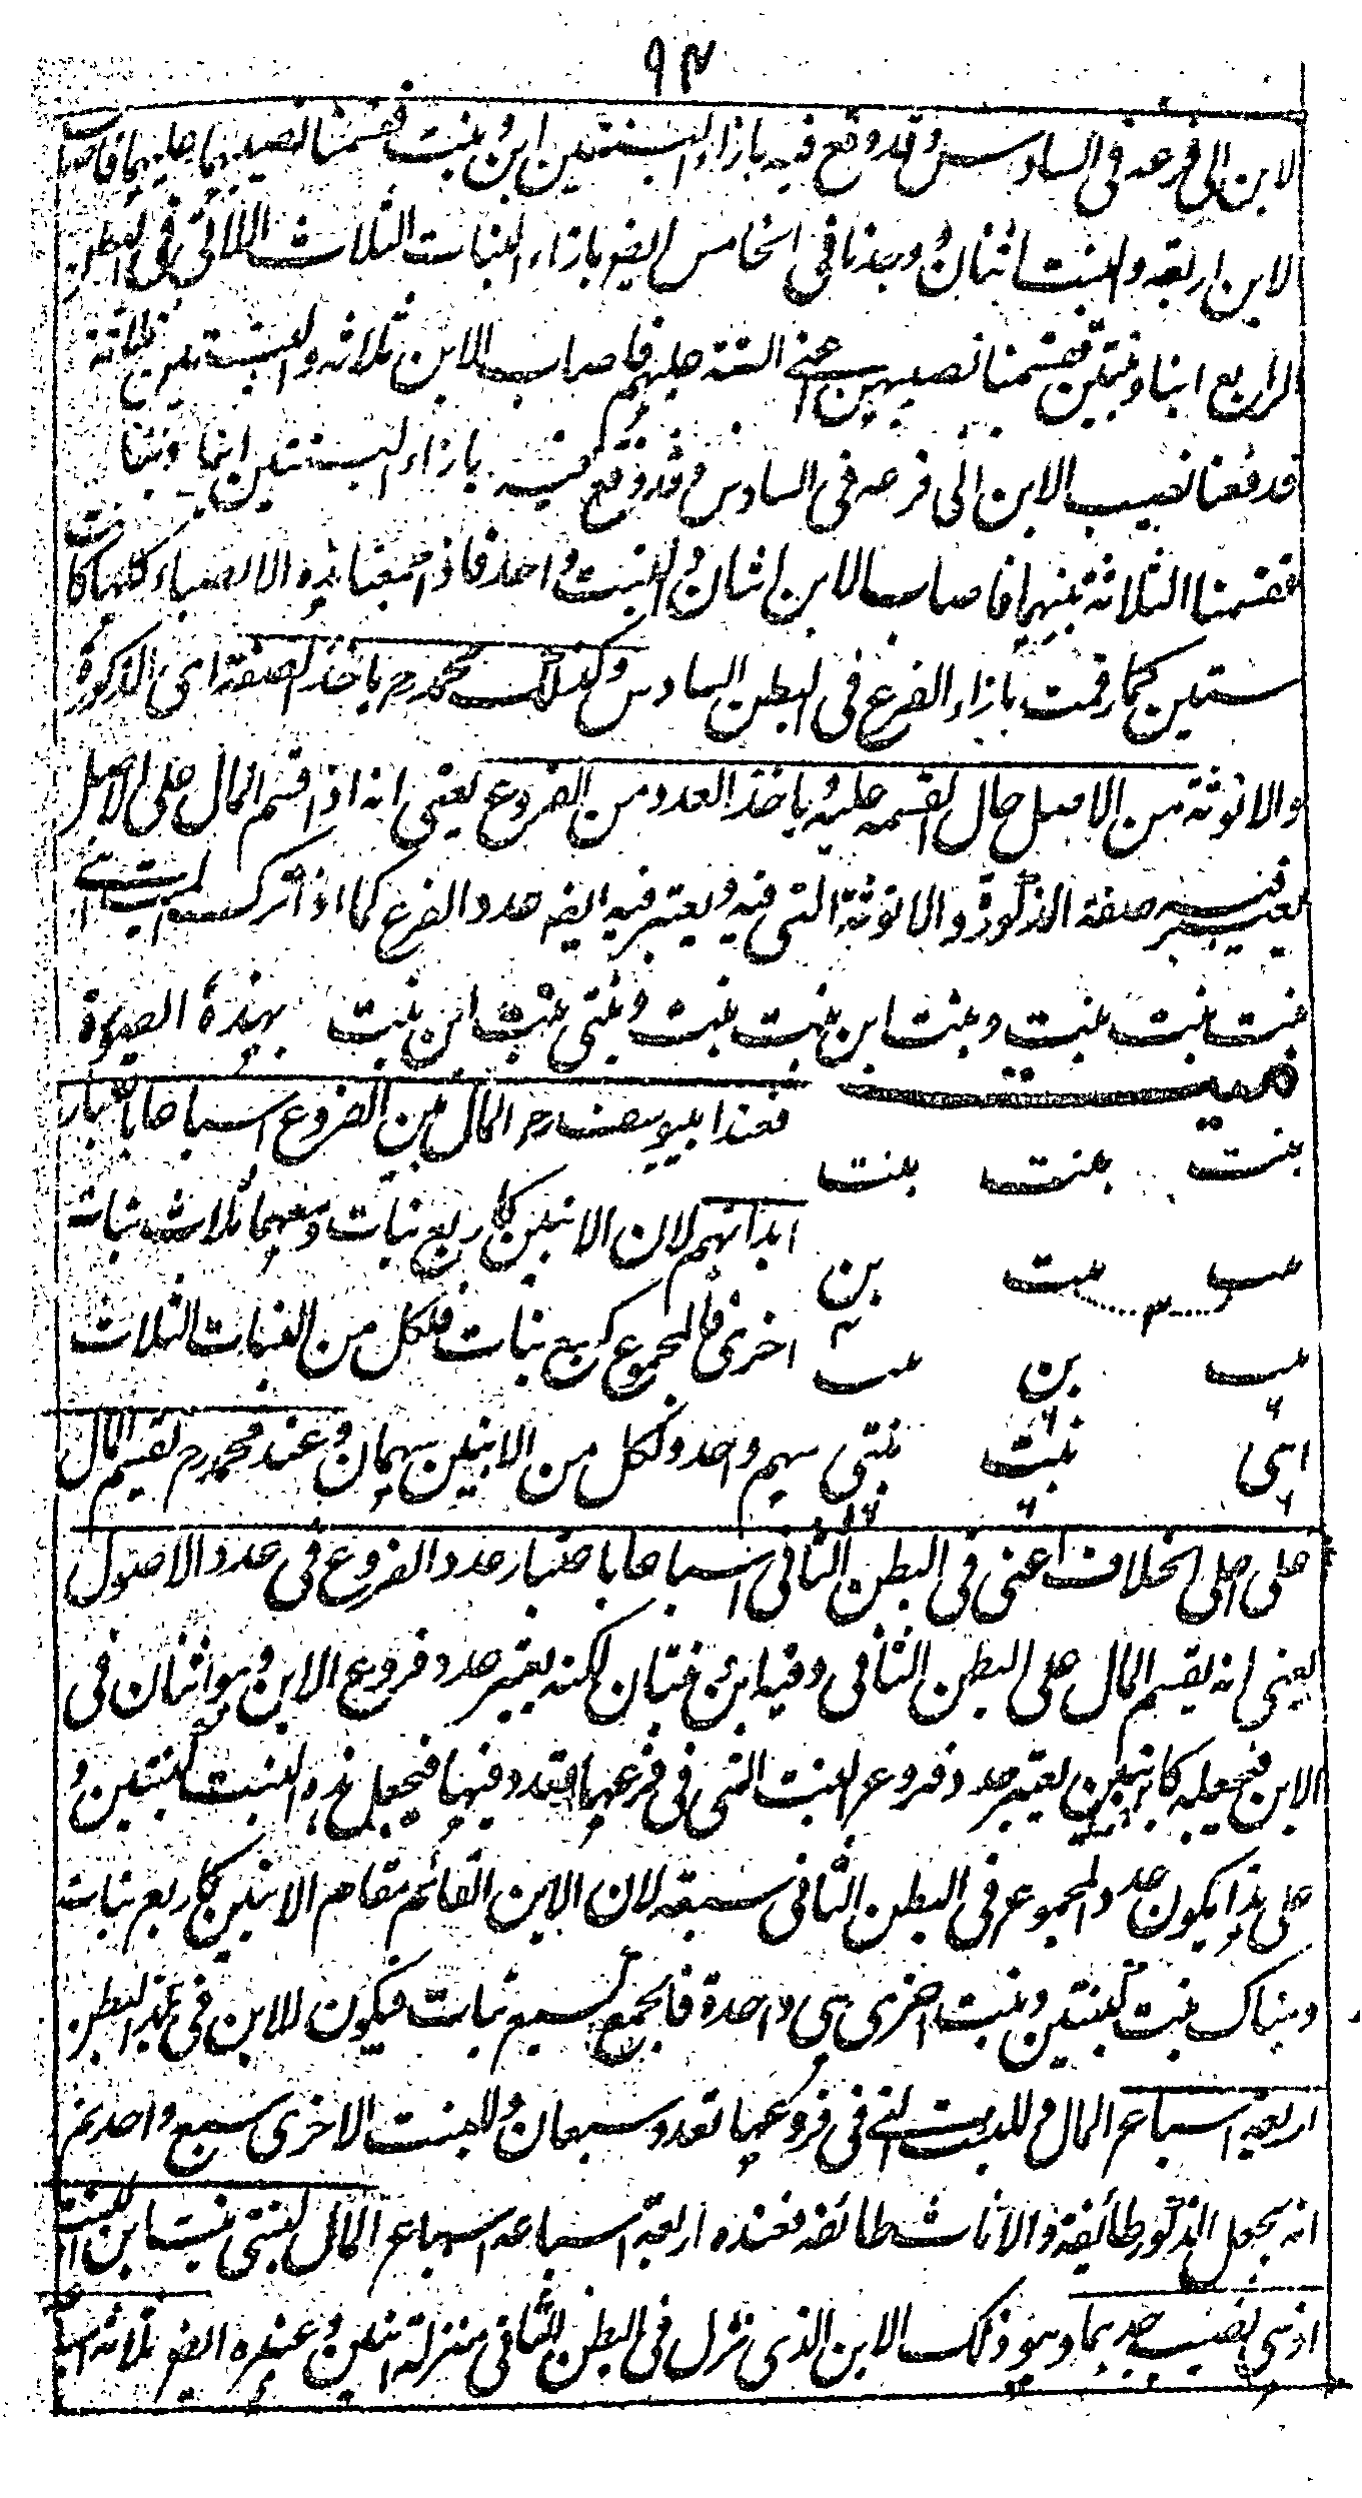 ٩٣
الابن الى فرعه فى السادس وقد وقع فيه بازاء البنتين ابن وبنت فقسمنا نصيبهما عليهما فاصاب
الابن اربعة والبنت اثنان ووجدنا فى الخامس ايضو بازاء البنات الثلاث اللاتى فى البطن
الرابع ابنا وبنتين فقسمنا نصيبهن اعنى الستة عليهم فاصاب الابن ثلاثة والبنتين ثلاثة
فدفعنا نصيب الابن الى فرعه فى السادس وقد وقع فيه بازاء البنتين ابنا وبنتا
فقسمنا الثلاثة بينهما فاصاب الابن اثنان والبنت واحد فاذا جمعنا هذه الانصباء كلها كانت
ستين كما رقمت بازاء الفرع فى البطن السادس وكذلك محمد رح ياخذ الصفة اى الذكورة
والانوثة من الاصل حال القسمة عليه وياخذ العدد من الفروع يعنى انه اذا قسم المال على الاصل
يعتبر فيه صفة الذكورة والانوثة التى فيه ويعتبر فيه ايضه عدد الفرع كما اذا ترك ابنتى
بنت بنت بنت وبنت ابن بنت بنت وبنتى بنت ابن بنت بهذه الصورة
ميت
فعند ابيوسف رح المال بين الفروع اسباعا باعتبار
بنت بنت بنت
ابدانهم لان الابنين كاربع بنات ومعهما ثلاث بنات
بنت بنت بن
٣
اخرى فالمجموع كسبع بنات فلكل من البنات الثلاث
بنت بن بنت
٦ ٦
ابنى بنت بنتى سهم واحد ولكل من الابنين سهمان وعند محمد رح يقسم المال
٦ ٦ ١٦
على اعلى الخلاف اعنى فى البطن الثانى اسباعا باعتبار عدد الفروع فى عدد الاصول
يعنى انه يقسم المال على البطن الثانى وفيه ابن وبنتان لكنه يعتبر عدد فروع الابن وهو اثنان فى
الابن فيجعله كابنين ويعتبر عدد فروع البنت التى فى فرعها تعدد فيها فيجعل هذه البنت كبنتين و
على هذا يكون عدد المجموع فى البطن الثانى سبعة لان الابن القائم مقام الابنين كاربع بنات
وهناك بنت كبنتين وبنت اخرى هى واحدة فالجمع كسبع بنات فيكون للابن فى هذا البطن
اربعة اسباع المال وللبنت التى فى فروعها تعدد سبعان وللبنت الاخرى سبع واحد ثم
انه يجعل الذكور طائفة والاناث طائفة فعنده اربعة اسباعه اسباع المال لبنتى بنت ابن البنت
اذ هى نصيب جدهما وهو ذلك الابن الذى نزل فى البطن الثانى منزلة ابنين وعنده ايضو ثلاثة اسبا